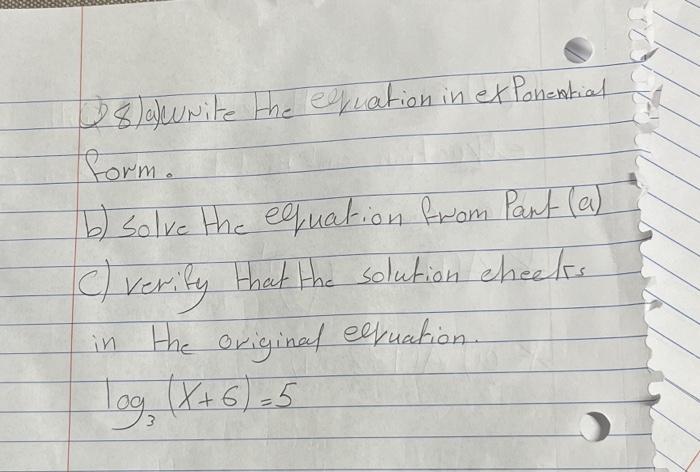 Q 8) a) write the equation in exponential
form.
b) solve the equation from Part (a)
c) verify that the solution checks
in the original equation.
log₃ (x+6) = 5